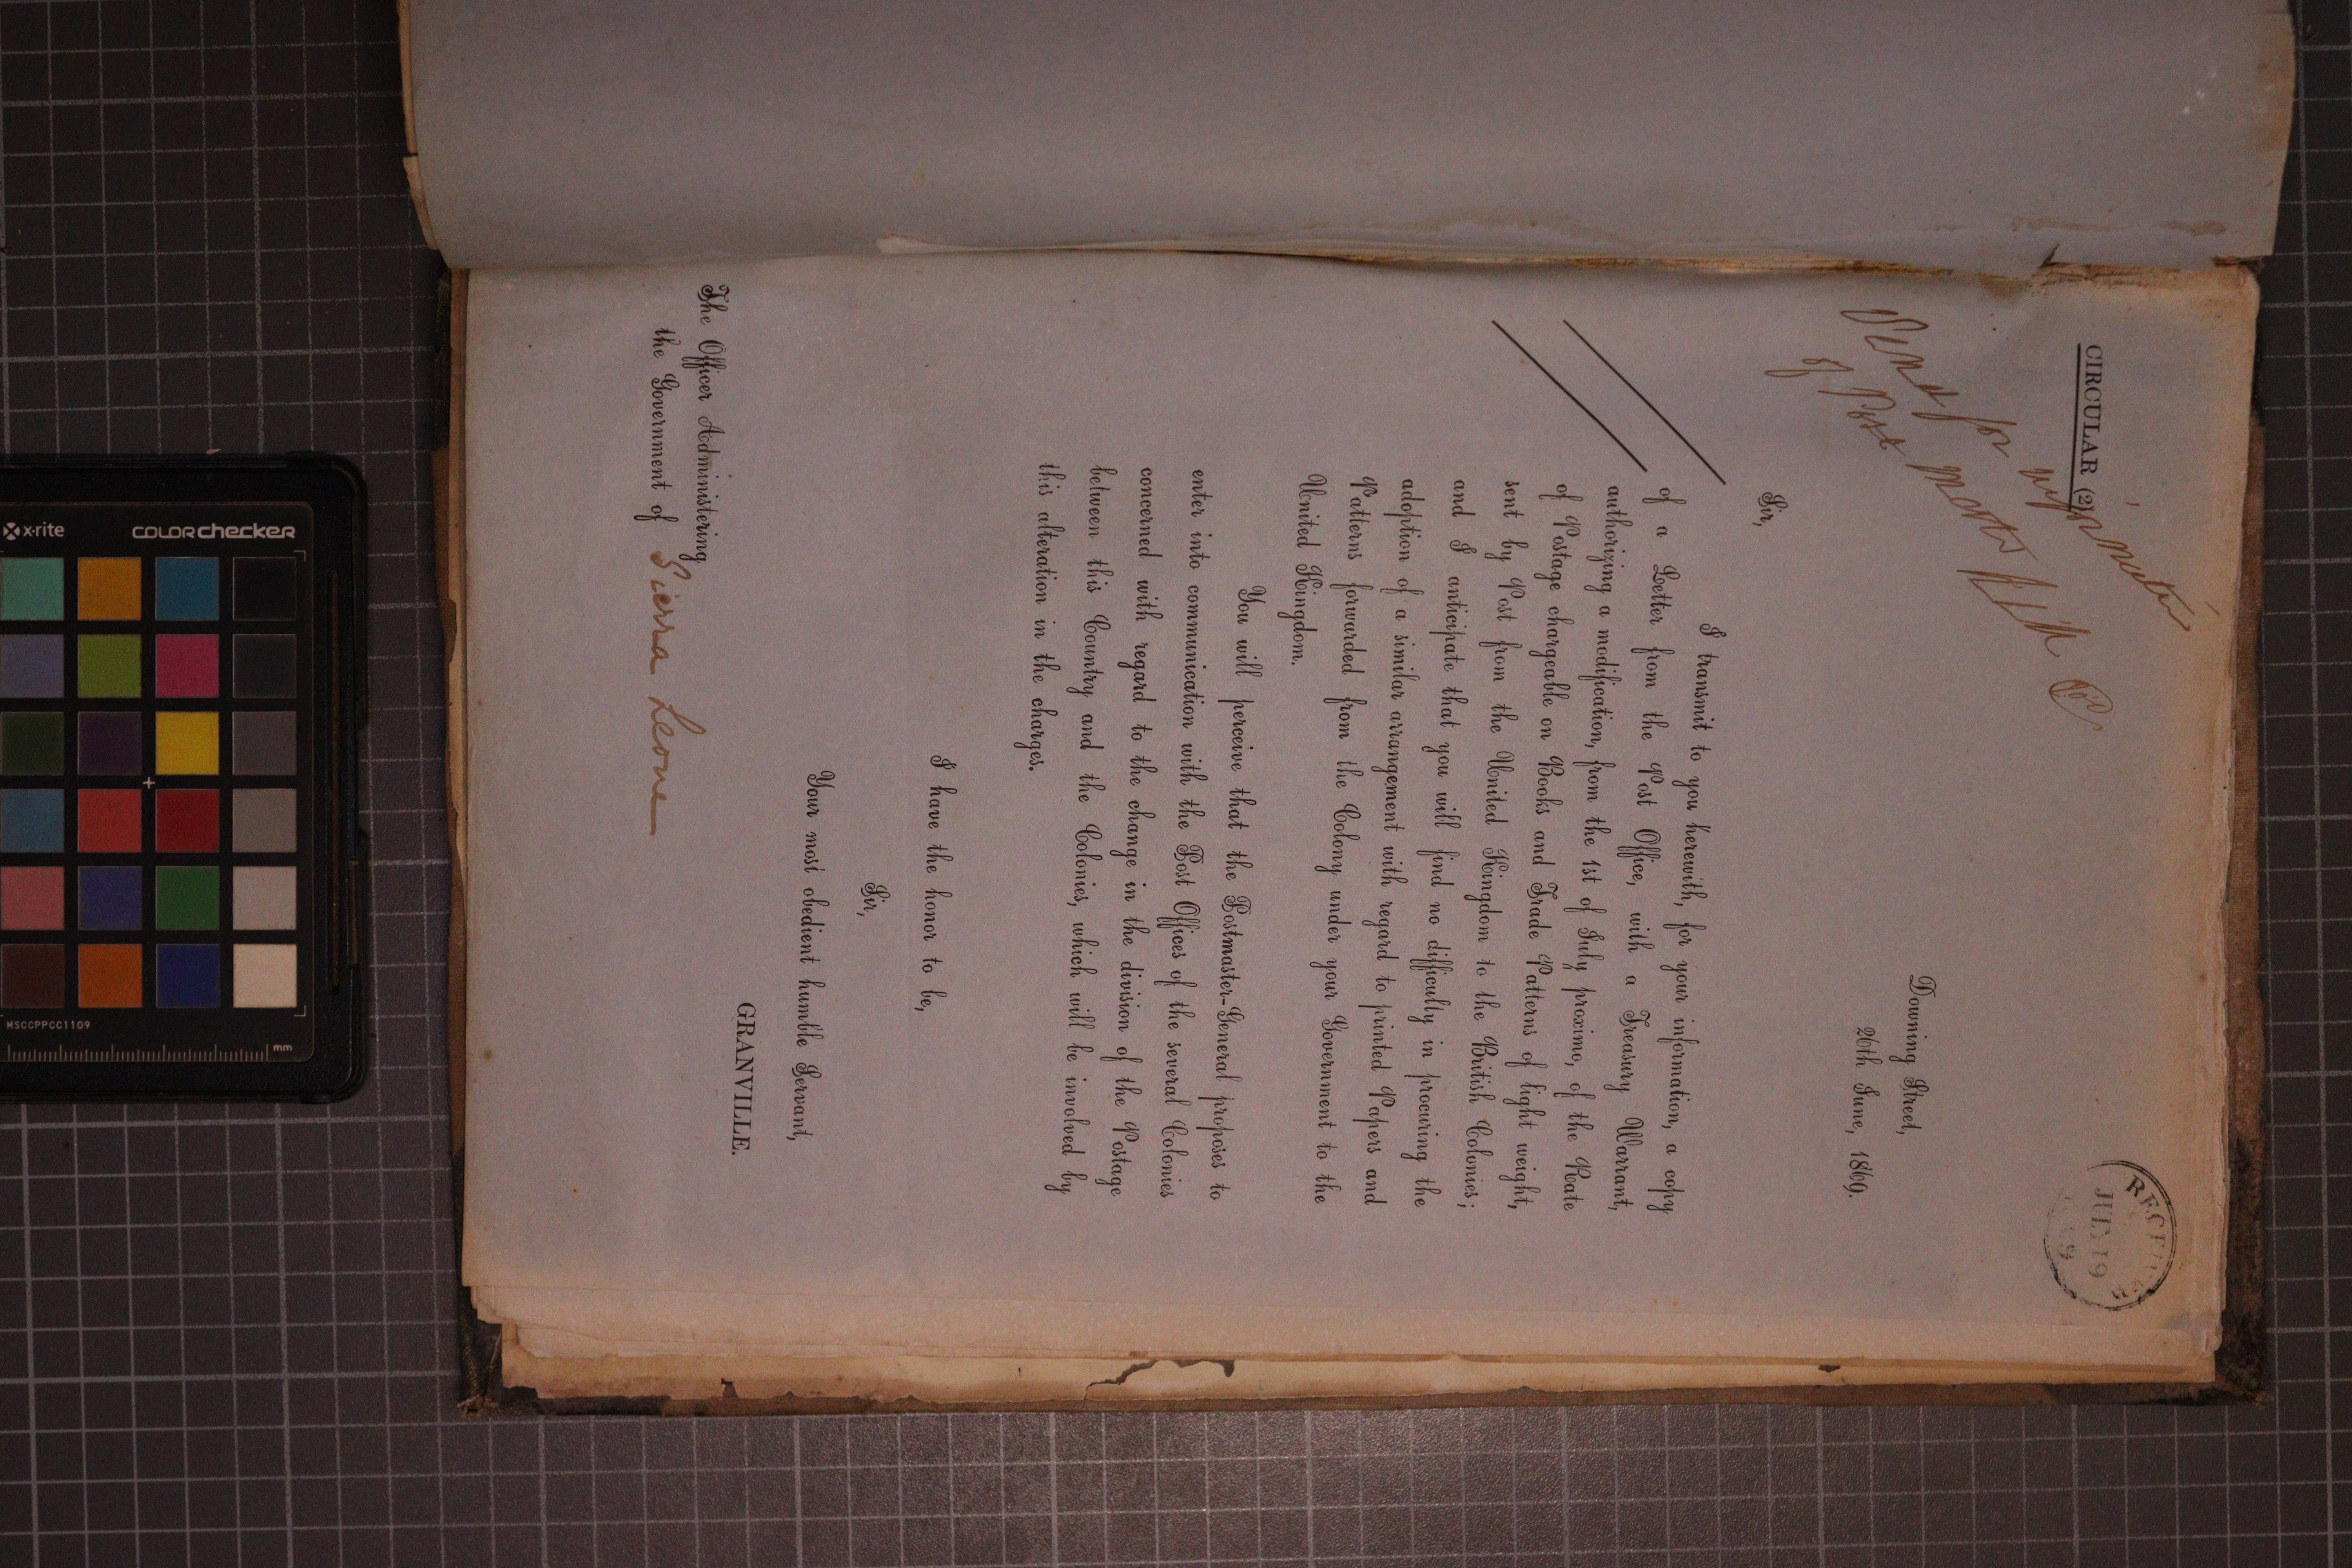 CIRCULAR (2)
RECEIVED
JUL 19
69
Send for information
of Post Master
Downing Street,
26th June, 1869.
Sir,
I transmit to you herewith, for your information, a copy
of a Letter from the Post Office, with a Treasury Warrant,
authorizing a modification, from the 1st of July proximo, of the Rate
of Postage chargeable on Books and Trade Patterns of light weight,
sent by Post from the United Kingdom to the British Colonies;
and I anticipate that you will find no difficulty in procuring the
adoption of a similar arrangement with regard to printed Papers and
Patterns forwarded from the Colony under your Government to the
United Kingdom.
You will perceive that the Postmaster-General proposes to
enter into communication with the Post Offices of the several Colonies
concerned with regard to the change in the division of the Postage
between this Country and the Colonies, which will be involved by
this alteration in the charges.
I have the honor to be,
Sir,
Your most obedient humble Servant,
GRANVILLE.
The Officer Administering
the Government of Sierra Leone
x·rite
COLORchecker
MSCCPPCC1109
mm